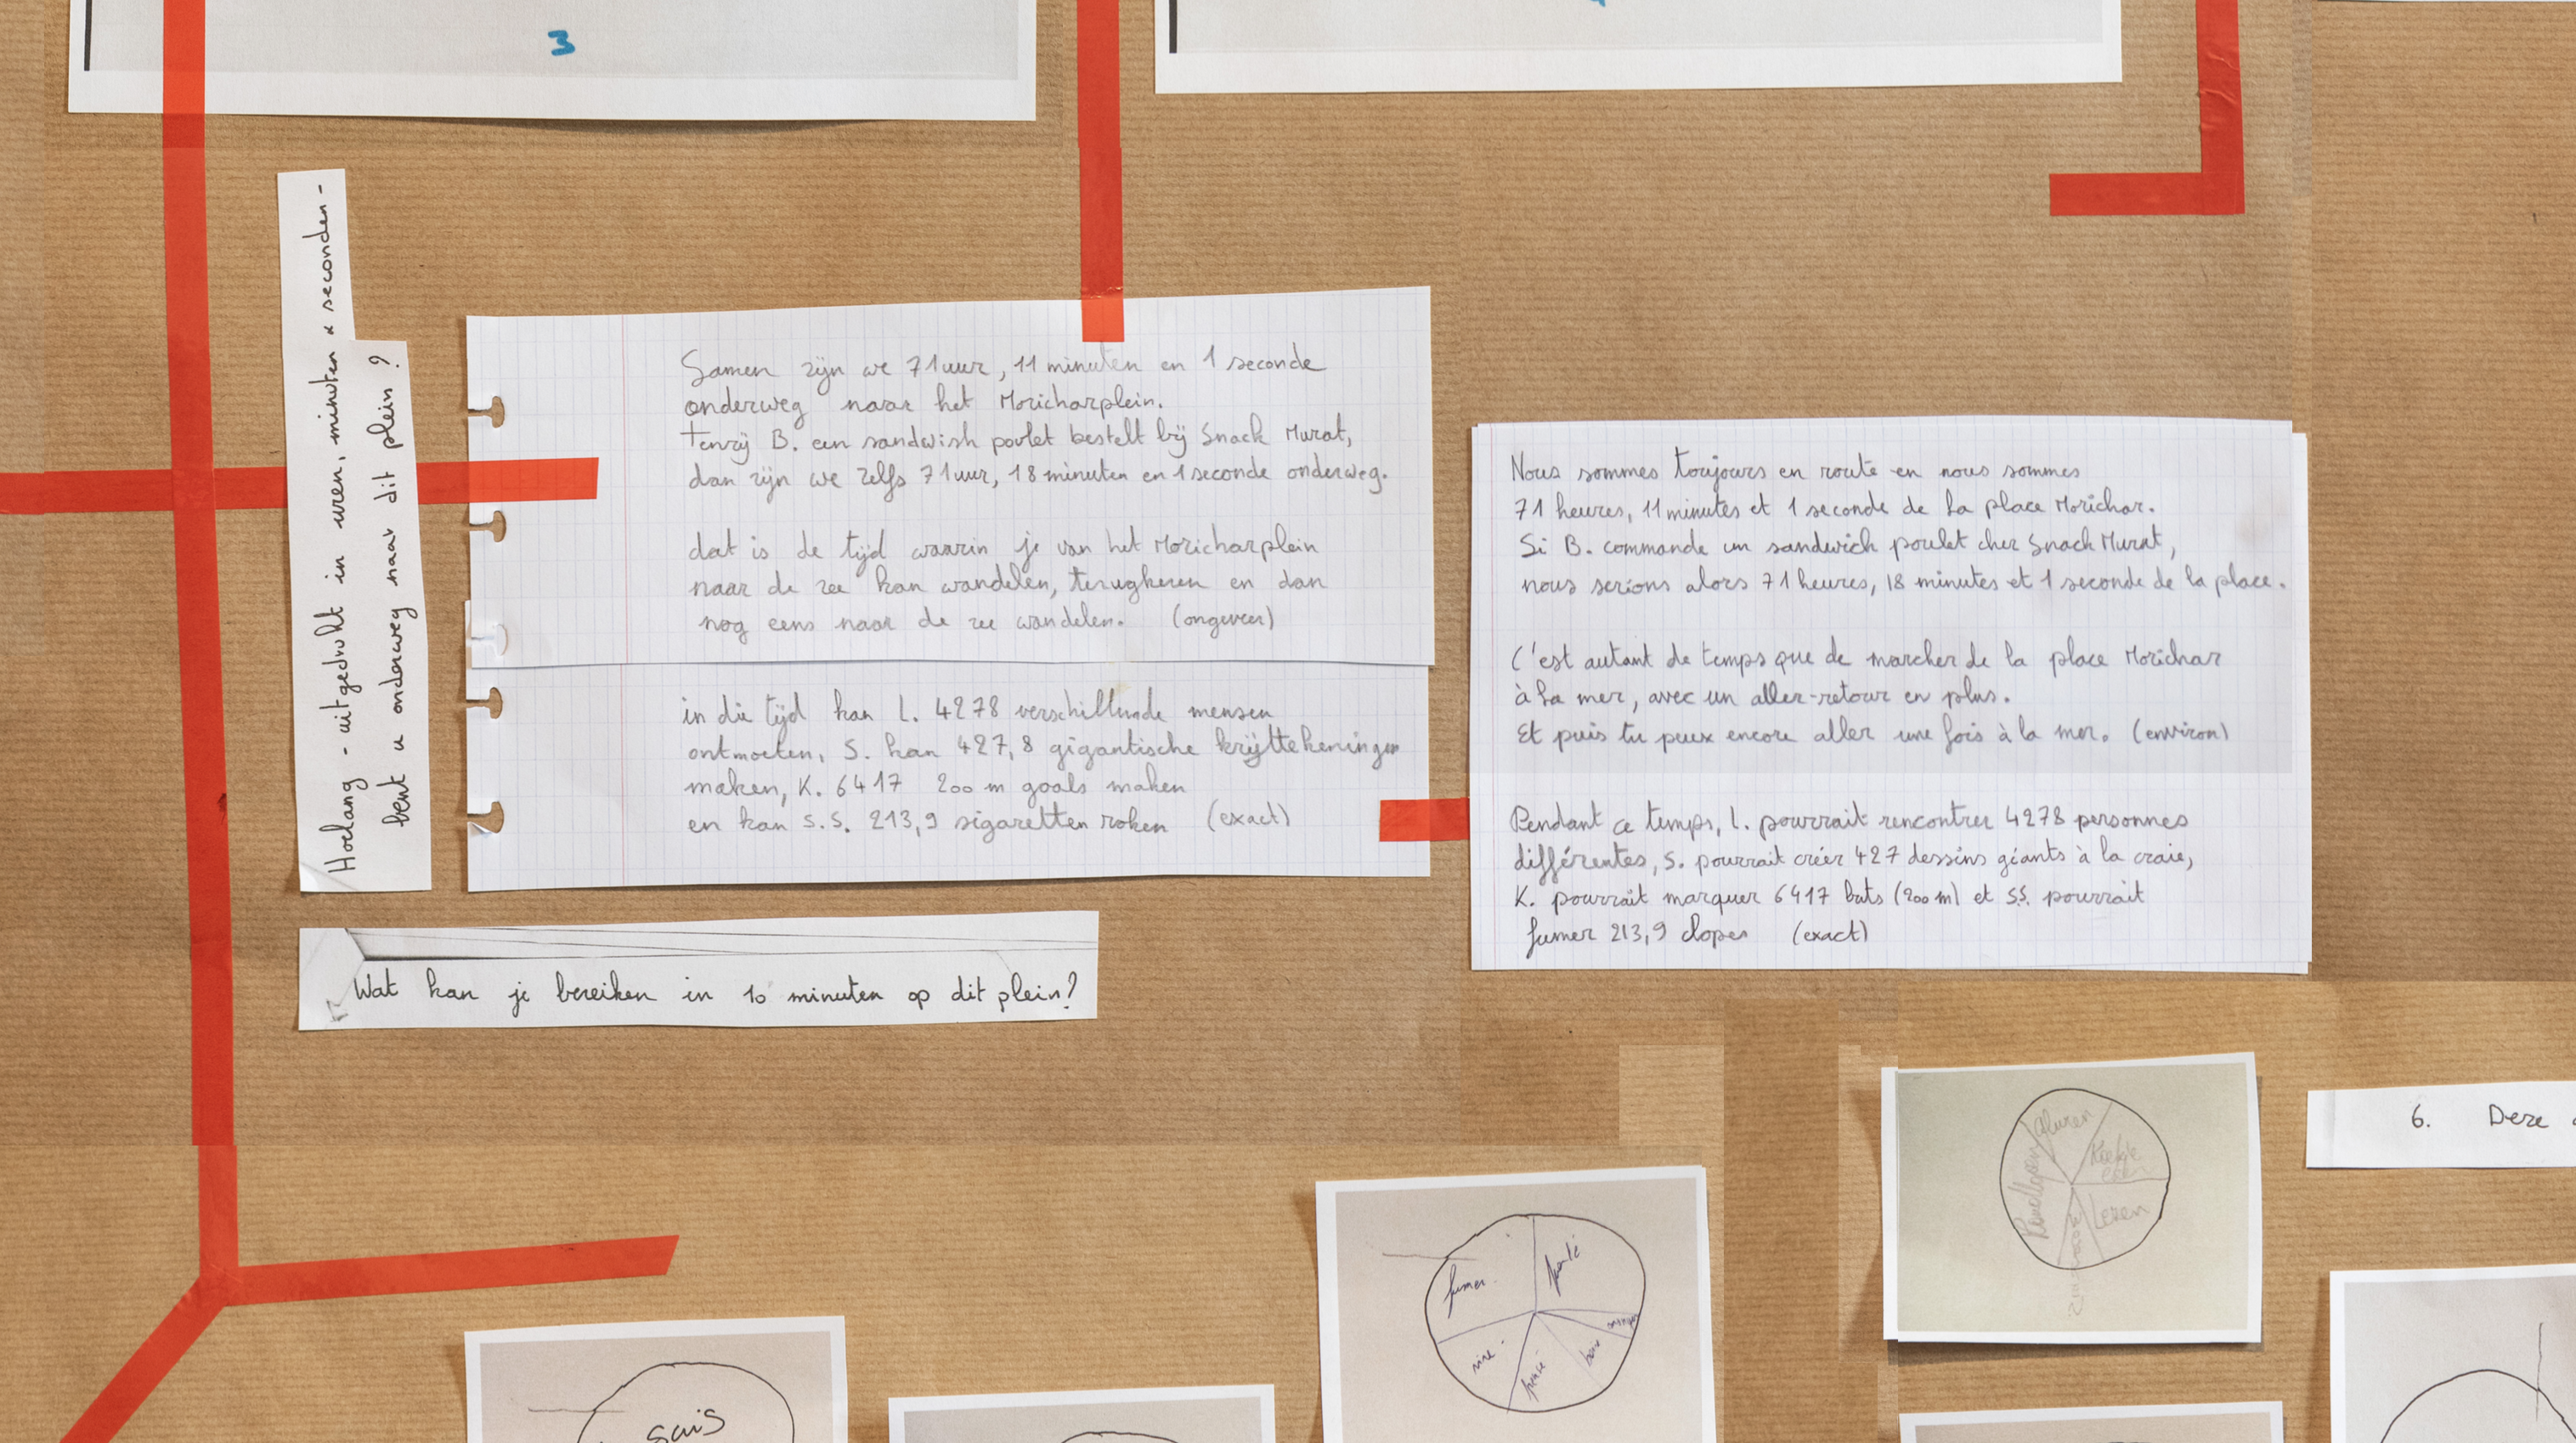 3
Hoelang - uitgedrukt in uren, minuten & seconden -
bent u onderweg naar dit plein?
Samen zijn we 71 uur, 11 minuten en 1 seconde
onderweg naar het Moricharplein.
Tenzij B. een sandwish poulet bestelt bij Snack Murat,
dan zijn we zelfs 71 uur, 18 minuten en 1 seconde onderweg.
dat is de tijd waarin je van het Moricharplein
naar de zee kan wandelen, terugkeren en dan
nog eens naar de zee wandelen. (ongeveer)
in die tijd kan L. 4278 verschillende mensen
ontmoeten, S. kan 427,8 gigantische krijttekeningen
maken, K. 6417 200 m goals maken
en kan S.S. 213,9 sigaretten roken (exact)
Wat kan je bereiken in 10 minuten op dit plein?
Nous sommes toujours en route en nous sommes
71 heures, 11 minutes et 1 seconde de la place Morichar.
Si B. commande un sandwich poulet chez Snack Murat,
nous serions alors 71 heures, 18 minutes et 1 seconde de la place.
C'est autant de temps que de marcher de la place Morichar
à la mer, avec un aller-retour en plus.
Et puis tu peux encore aller une fois à la mer. (environ)
Pendant ce temps, L. pourrait rencontrer 4278 personnes
différentes, S. pourrait créer 427 dessins géants à la craie,
K. pourrait marquer 6417 buts (200 m) et S.S. pourrait
fumer 213,9 clopes (exact)
6. Deze
Lezen
fumer
sais